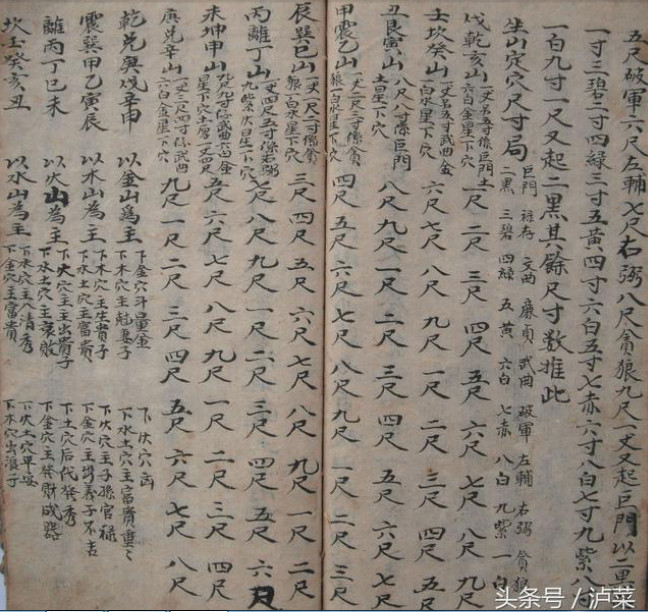 五尺破軍六尺左輔七尺右弼八尺貪狼九尺一丈又起巨門以一黑
一寸三碧二寸四綠三寸五黃四寸六白五寸七赤六寸八白七寸九紫八寸
一白九寸一尺又起二黑其餘尺寸数推此
坐山定穴尺寸局
巨門 祿存 文曲 廉貞 武曲 破軍 左輔 右弼 貪狼
二黑 三碧 四綠 五黃 六白 七赤 八白 九紫 一白
戌乾亥山 一尺 二尺 三尺 四尺 五尺 六尺 七尺 八尺 九尺
六白金星下穴
壬坎癸山 六尺 七尺 八尺 九尺 一尺 二尺 三尺 四尺 五尺
一白水星下穴
丑艮寅山 八尺 九尺 一尺 二尺 三尺 四尺 五尺 六尺 七尺
八尺八寸係巨門
土星下穴
甲震乙山 四尺 五尺 六尺 七尺 八尺 九尺 一尺 二尺 三尺
一丈一尺三寸係貪
狼一白水星下穴
辰巽巳山 三尺 四尺 五尺 六尺 七尺 八尺 九尺 一尺 二尺
一丈一尺二寸係貪
狼一白水星下穴
丙離丁山 七尺 八尺 九尺 一尺 二尺 三尺 四尺 五尺 六尺
一丈四尺五寸係右弼
九紫火星下穴
未坤申山 五尺 六尺 七尺 八尺 九尺 一尺 二尺 三尺 四尺
庚兌辛山 九尺 一尺 二尺 三尺 四尺 五尺 六尺 七尺 八尺
一丈三尺四寸係武曲
六白金星下穴
乾兌庚戌辛申 以金山為主 下金穴斗量金 下火穴凶
下木穴主尅妻子 下水土穴主富貴重々
震巽甲乙寅辰 以木山為主 下木穴主生貴子 下火穴主子孫官祿
下水土穴主富貴 下金穴主過義子不吉
離丙丁巳未 以火山為主 下火穴主出貴子 下土穴后代發秀
下水土穴主衰敗 下金穴主發財成器
坎壬癸亥丑 以水山為主 下水穴主人清秀
下金穴主富貴
头条号 / 泸菜